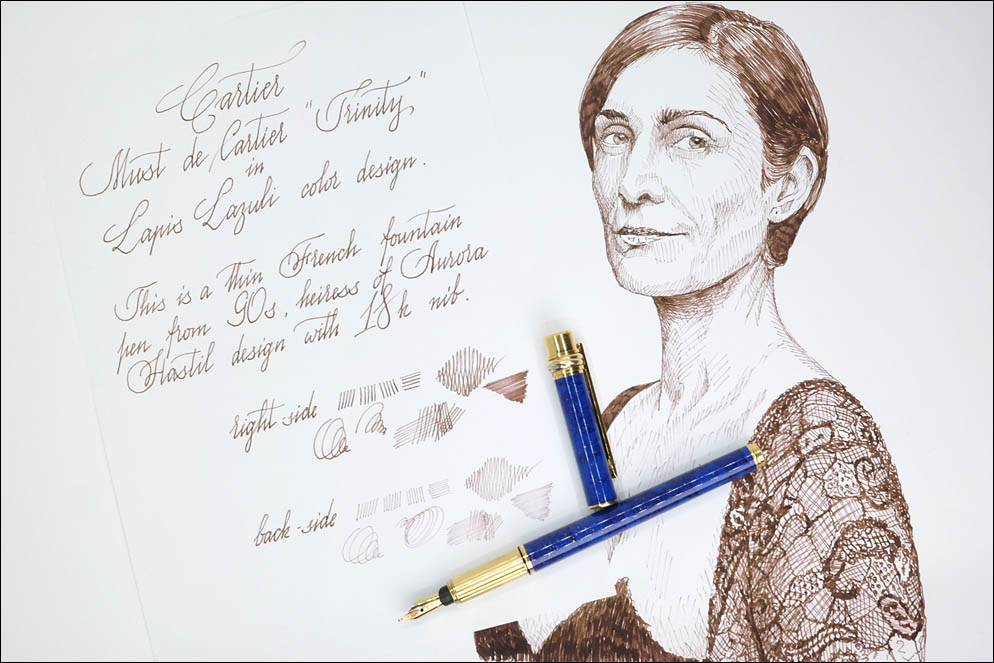 Cartier
Must de Cartier "Trinity"
in
Lapis Lazuli color design.
This is a thin French fountain
pen from 90s, heiress of Aurora
Hastil design with 18k nib.
right-side
back-side